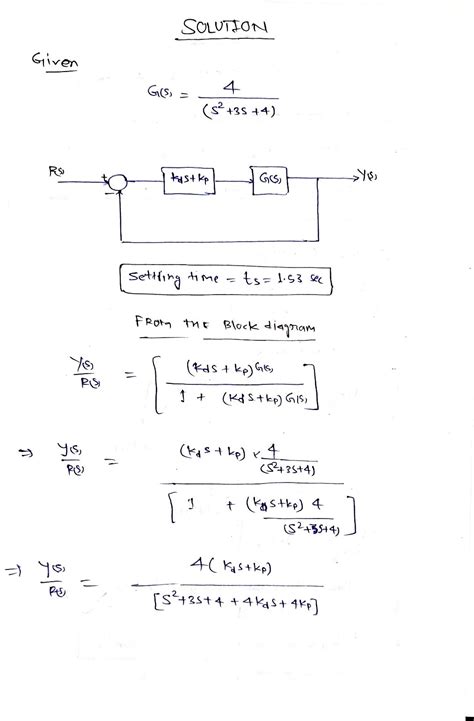 SOLUTION
Given
G(s) = 4 / (S²+3S+4)
R(s) + - KdS+Kp G(s) Y(s)
Settling time = ts = 1.53 sec
From the Block diagram
Y(s)/R(s) = [ (KdS+Kp)G(s) / 1 + (KdS+Kp)G(s) ]
⇒ Y(s)/R(s) = (KdS+Kp) × 4/(S²+3S+4) / [ 1 + (KdS+Kp) 4/(S²+3S+4) ]
⇒ Y(s)/R(s) = 4(KdS+Kp) / [S²+3S+4+4KdS+4Kp]